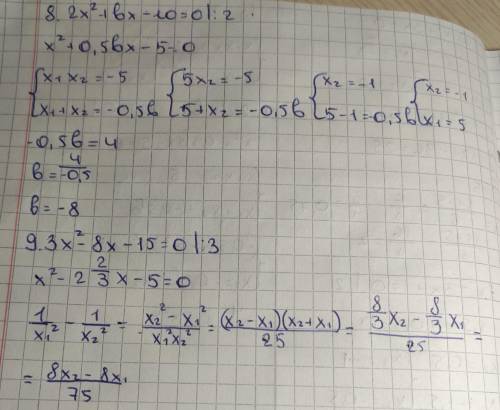 8. 2x²+вx-10=0 |:2
x²+0,5вx-5=0
{x₁x₂=-5 {5x₂=-5 {x₂=-1 {x₂=-1
{x₁+x₂=-0,5в {5+x₂=-0,5в {5-1=-0,5в {x₁=5
-0,5в=4
в=4/-0,5
в=-8
9. 3x²-8x-15=0 |:3
x²-2 2/3 x-5=0
1/x₁² - 1/x₂² = (x₂²-x₁²)/(x₁²x₂²) = (x₂-x₁)(x₂+x₁)/25 = (8/3 x₂ - 8/3 x₁)/25 =
= (8x₂-8x₁)/75